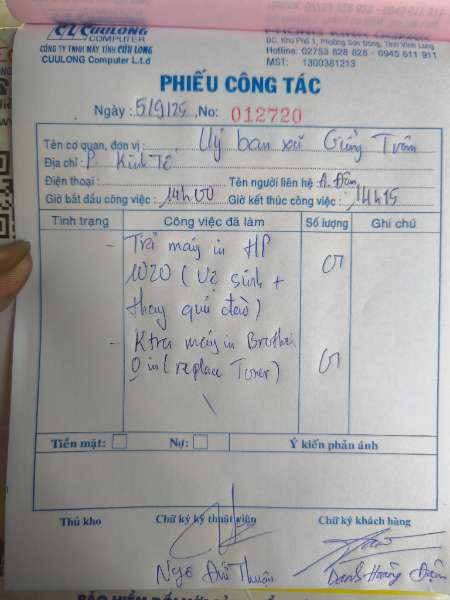 CUULONG
COMPUTER
CÔNG TY TNHH MÁY TÍNH CỬU LONG
CUULONG Computer L.t.d
ĐC: Khu Phố 1, Phường Sơn Đông, Tỉnh Vĩnh Long
Hotline: 02753 828 828 - 0945 611 911
MST: 1300381213
PHIẾU CÔNG TÁC
Ngày : 5/9/25 No: 012720
Tên cơ quan, đơn vị : Uỷ ban xã Giồng Trôm
Địa chỉ : P. Kinh Tế
Điện thoại : Tên người liên hệ : A. Đậm
Giờ bắt đầu công việc : 14h00 Giờ kết thúc công việc : 14h15
Tình trạng Công việc đã làm Số lượng Ghi chú
- Trả máy in HP
1020 (Vệ sinh + 01
thay quả đào)
- Ktra máy in Brother
0 in (replace Toner) 01
Tiền mặt: Nợ: Ý kiến phản ánh
Thủ kho Chữ ký kỹ thuật viên Chữ ký khách hàng
Ngô Đức Thuận Danh Hoàng Đậm